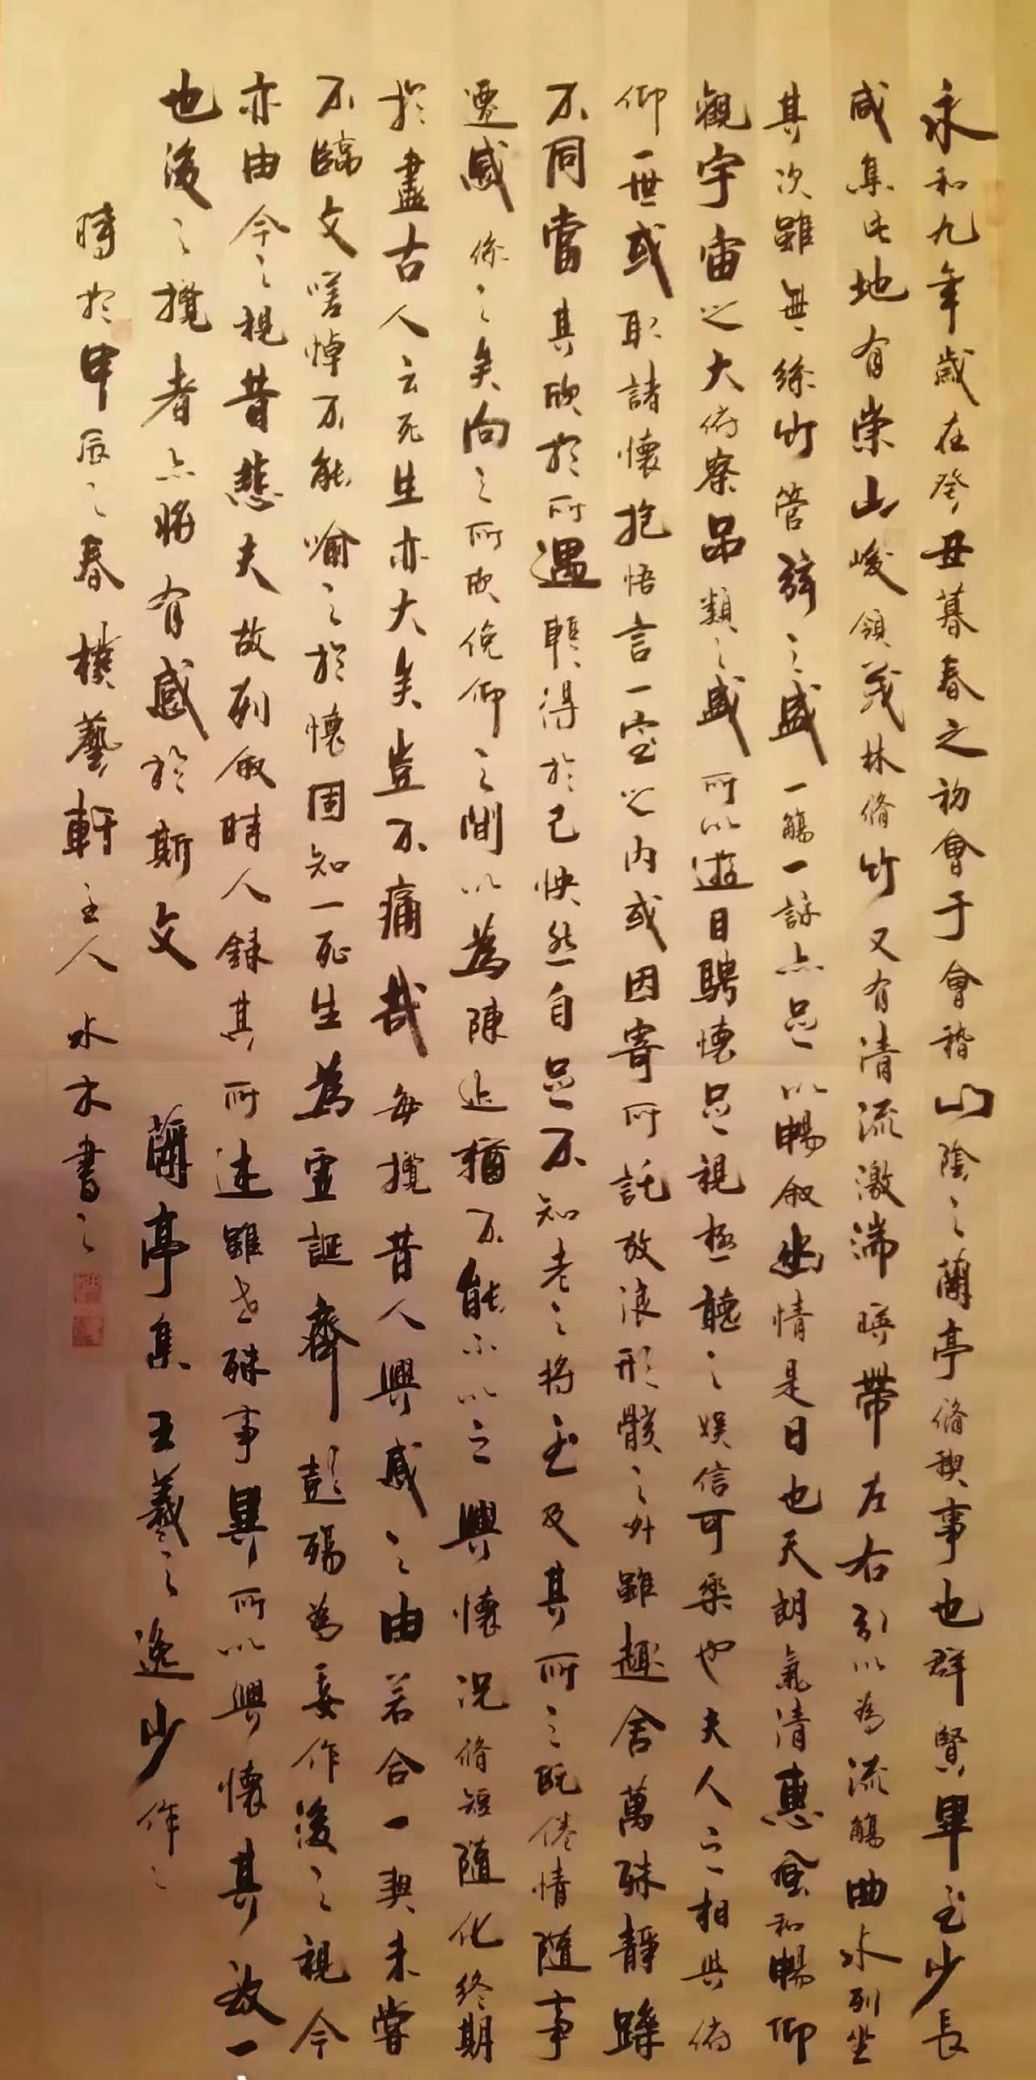 永和九年歲在癸丑暮春之初會于會稽山陰之蘭亭脩稧事也群賢畢至少長
咸集此地有崇山峻領茂林脩竹又有清流激湍暎帶左右引以為流觴曲水列坐
其次雖無絲竹管弦之盛一觴一詠亦足以暢敘幽情是日也天朗氣清惠風和暢仰
觀宇宙之大俯察品類之盛所以遊目騁懷足以視極聽之娛信可樂也夫人之相與俯
仰一世或取諸懷抱悟言一室之內或因寄所託放浪形骸之外雖趣舍萬殊靜躁
不同當其欣於所遇輒得於己怏然自足不知老之將至及其所之既倦情隨事
遷感係之矣向之所欣俛仰之間以為陳迹猶不能不以之興懷況脩短隨化終期
於盡古人云死生亦大矣豈不痛哉每攬昔人興感之由若合一契未嘗
不臨文嗟悼不能喻之於懷固知一死生為虛誕齊彭殤為妄作後之視今
亦由今之視昔悲夫故列敘時人錄其所述雖世殊事異所以興懷其致一
也後之攬者亦將有感於斯文 蘭亭集 王羲之逸少作之
時於甲辰之春樸藝軒主人 水木書之